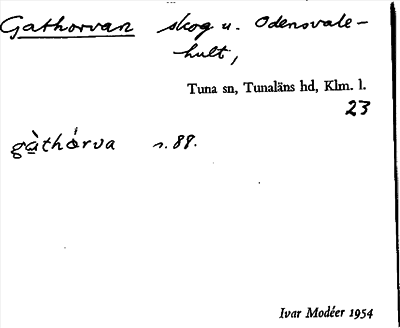 Gathorvan skog u. Odensvale-
hult,
Tuna sn, Tunaläns hd, Klm. l.
23
gàthórva n. 88.
Ivar Modéer 1954